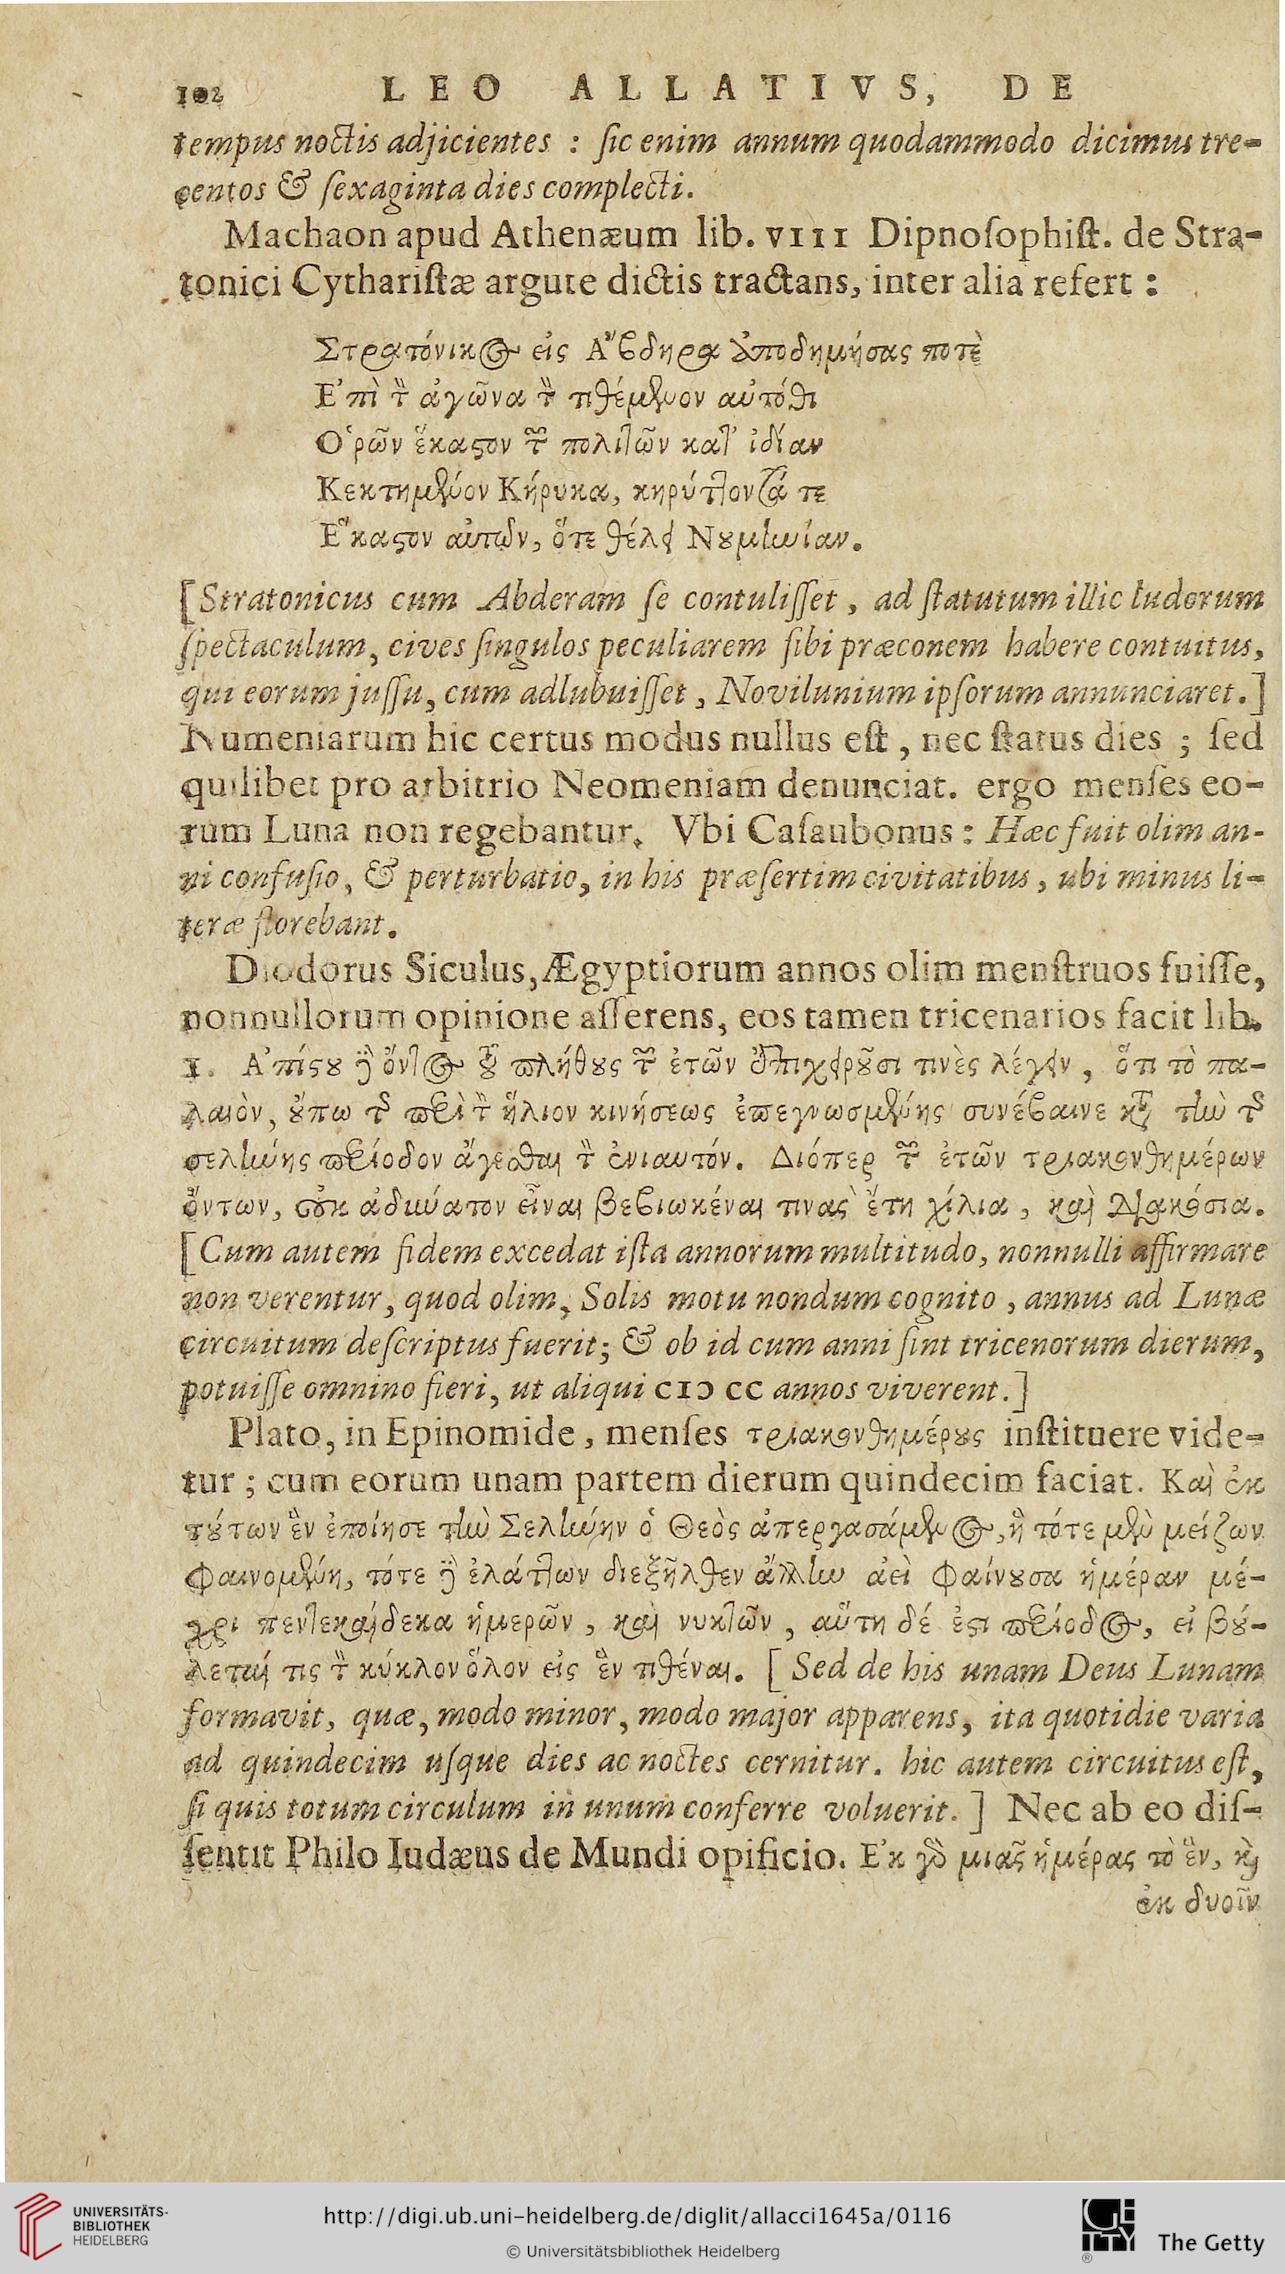 102 LEO ALLATIVS, DE
tempus noctis adjicientes : ſic enim annum quodammodo dicimus tre-
centos & ſexaginta dies complecti.
Machaon apud Athenæum lib. VIII Dipnoſophiſt. de Stra-
tonici Cythariſtæ argute dictis tractans, inter alia refert :
Στρατόνικος εἰς Ἄβδηρα ἀποδημήσας ποτὲ
Ἐπὶ τὸν ἀγῶνα τὸν τιθέμενον αὐτόθι
Ὁρῶν ἕκαστον τῶν πολιτῶν κατ' ἰδίαν
Κεκτημένον Κήρυκα, κηρύττοντά τε
Ἕκαστον αὐτῶν, ὅτε θέλει Νουμηνίαν.
[Stratonicus cum Abderam ſe contuliſſet, ad ſtatutum illic ludorum
ſpectaculum, cives ſingulos peculiarem ſibi præconem habere contuitus,
qui eorum juſſu, cum adlubuiſſet, Novilunium ipſorum annunciaret.]
Numeniarum hic certus modus nullus eſt, nec ſtatus dies ; ſed
quilibet pro arbitrio Neomeniam denunciat. ergo menſes eo-
rum Luna non regebantur. Vbi Caſaubonus : Hæc fuit olim an-
ni confuſio, & perturbatio, in his præſertim civitatibus, ubi minus li-
teræ florebant.
Diodorus Siculus, Ægyptiorum annos olim menſtruos fuiſſe,
nonnullorum opinione aſſerens, eos tamen tricenarios facit lib.
1. Ἀπίστου δὲ ὄντος τοῦ πλήθους τῶν ἐτῶν ἐπιχειροῦσι τινὲς λέγειν, ὅτι τὸ πα-
λαιὸν, οὔπω τῆς περὶ τὸν ἥλιον κινήσεως ἐπεγνωσμένης συνέβαινε κατὰ τὴν τῆς
σελήνης περίοδον ἄγεσθαι τὸν ἐνιαυτόν. Διόπερ τῶν ἐτῶν τριακονθημέρων
ὄντων, οὐκ ἀδύνατον εἶναι βεβιωκέναι τινας ἔτη χίλια, καὶ διακόσια.
[Cum autem fidem excedat iſta annorum multitudo, nonnulli affirmare
non verentur, quod olim, Solis motu nondum cognito, annus ad Lunæ
circuitum deſcriptus fuerit; & ob id cum anni ſint tricenorum dierum,
potuiſſe omnino fieri, ut aliqui CIↃ CC annos viverent.]
Plato, in Epinomide, menſes τριακονθημέρους inſtituere vide-
tur ; cum eorum unam partem dierum quindecim faciat. Καὶ ἐκ
τούτων ἓν ἐποίησε τὴν Σελήνην ὁ Θεὸς ἀπεργασάμενος, ἣ τότε μὲν μείζων
φαινομένη, τότε δὲ ἐλάττων διεξῆλθεν ἄλλην ἀεὶ φαίνουσα ἡμέραν μέ-
χρι πεντεκαίδεκα ἡμερῶν, καὶ νυκτῶν, αὕτη δέ ἐστι περίοδος, εἰ βού-
λεταί τις τὸν κύκλον ὅλον εἰς ἓν τιθέναι. [Sed de his unam Deus Lunam
formavit, quæ, modo minor, modo major apparens, ita quotidie varia
ad quindecim uſque dies ac noctes cernitur. hic autem circuitus eſt,
ſi quis totum circulum in unum conferre voluerit.] Nec ab eo diſ-
ſentit Philo Iudæus de Mundi opificio. Ἐκ γὰρ μιᾶς ἡμέρας τὸ ἓν, καὶ
ἐκ δυοῖν
UNIVERSITÄTS-
BIBLIOTHEK
HEIDELBERG
http://digi.ub.uni-heidelberg.de/diglit/allacci1645a/0116
© Universitätsbibliothek Heidelberg
GETTY
® The Getty